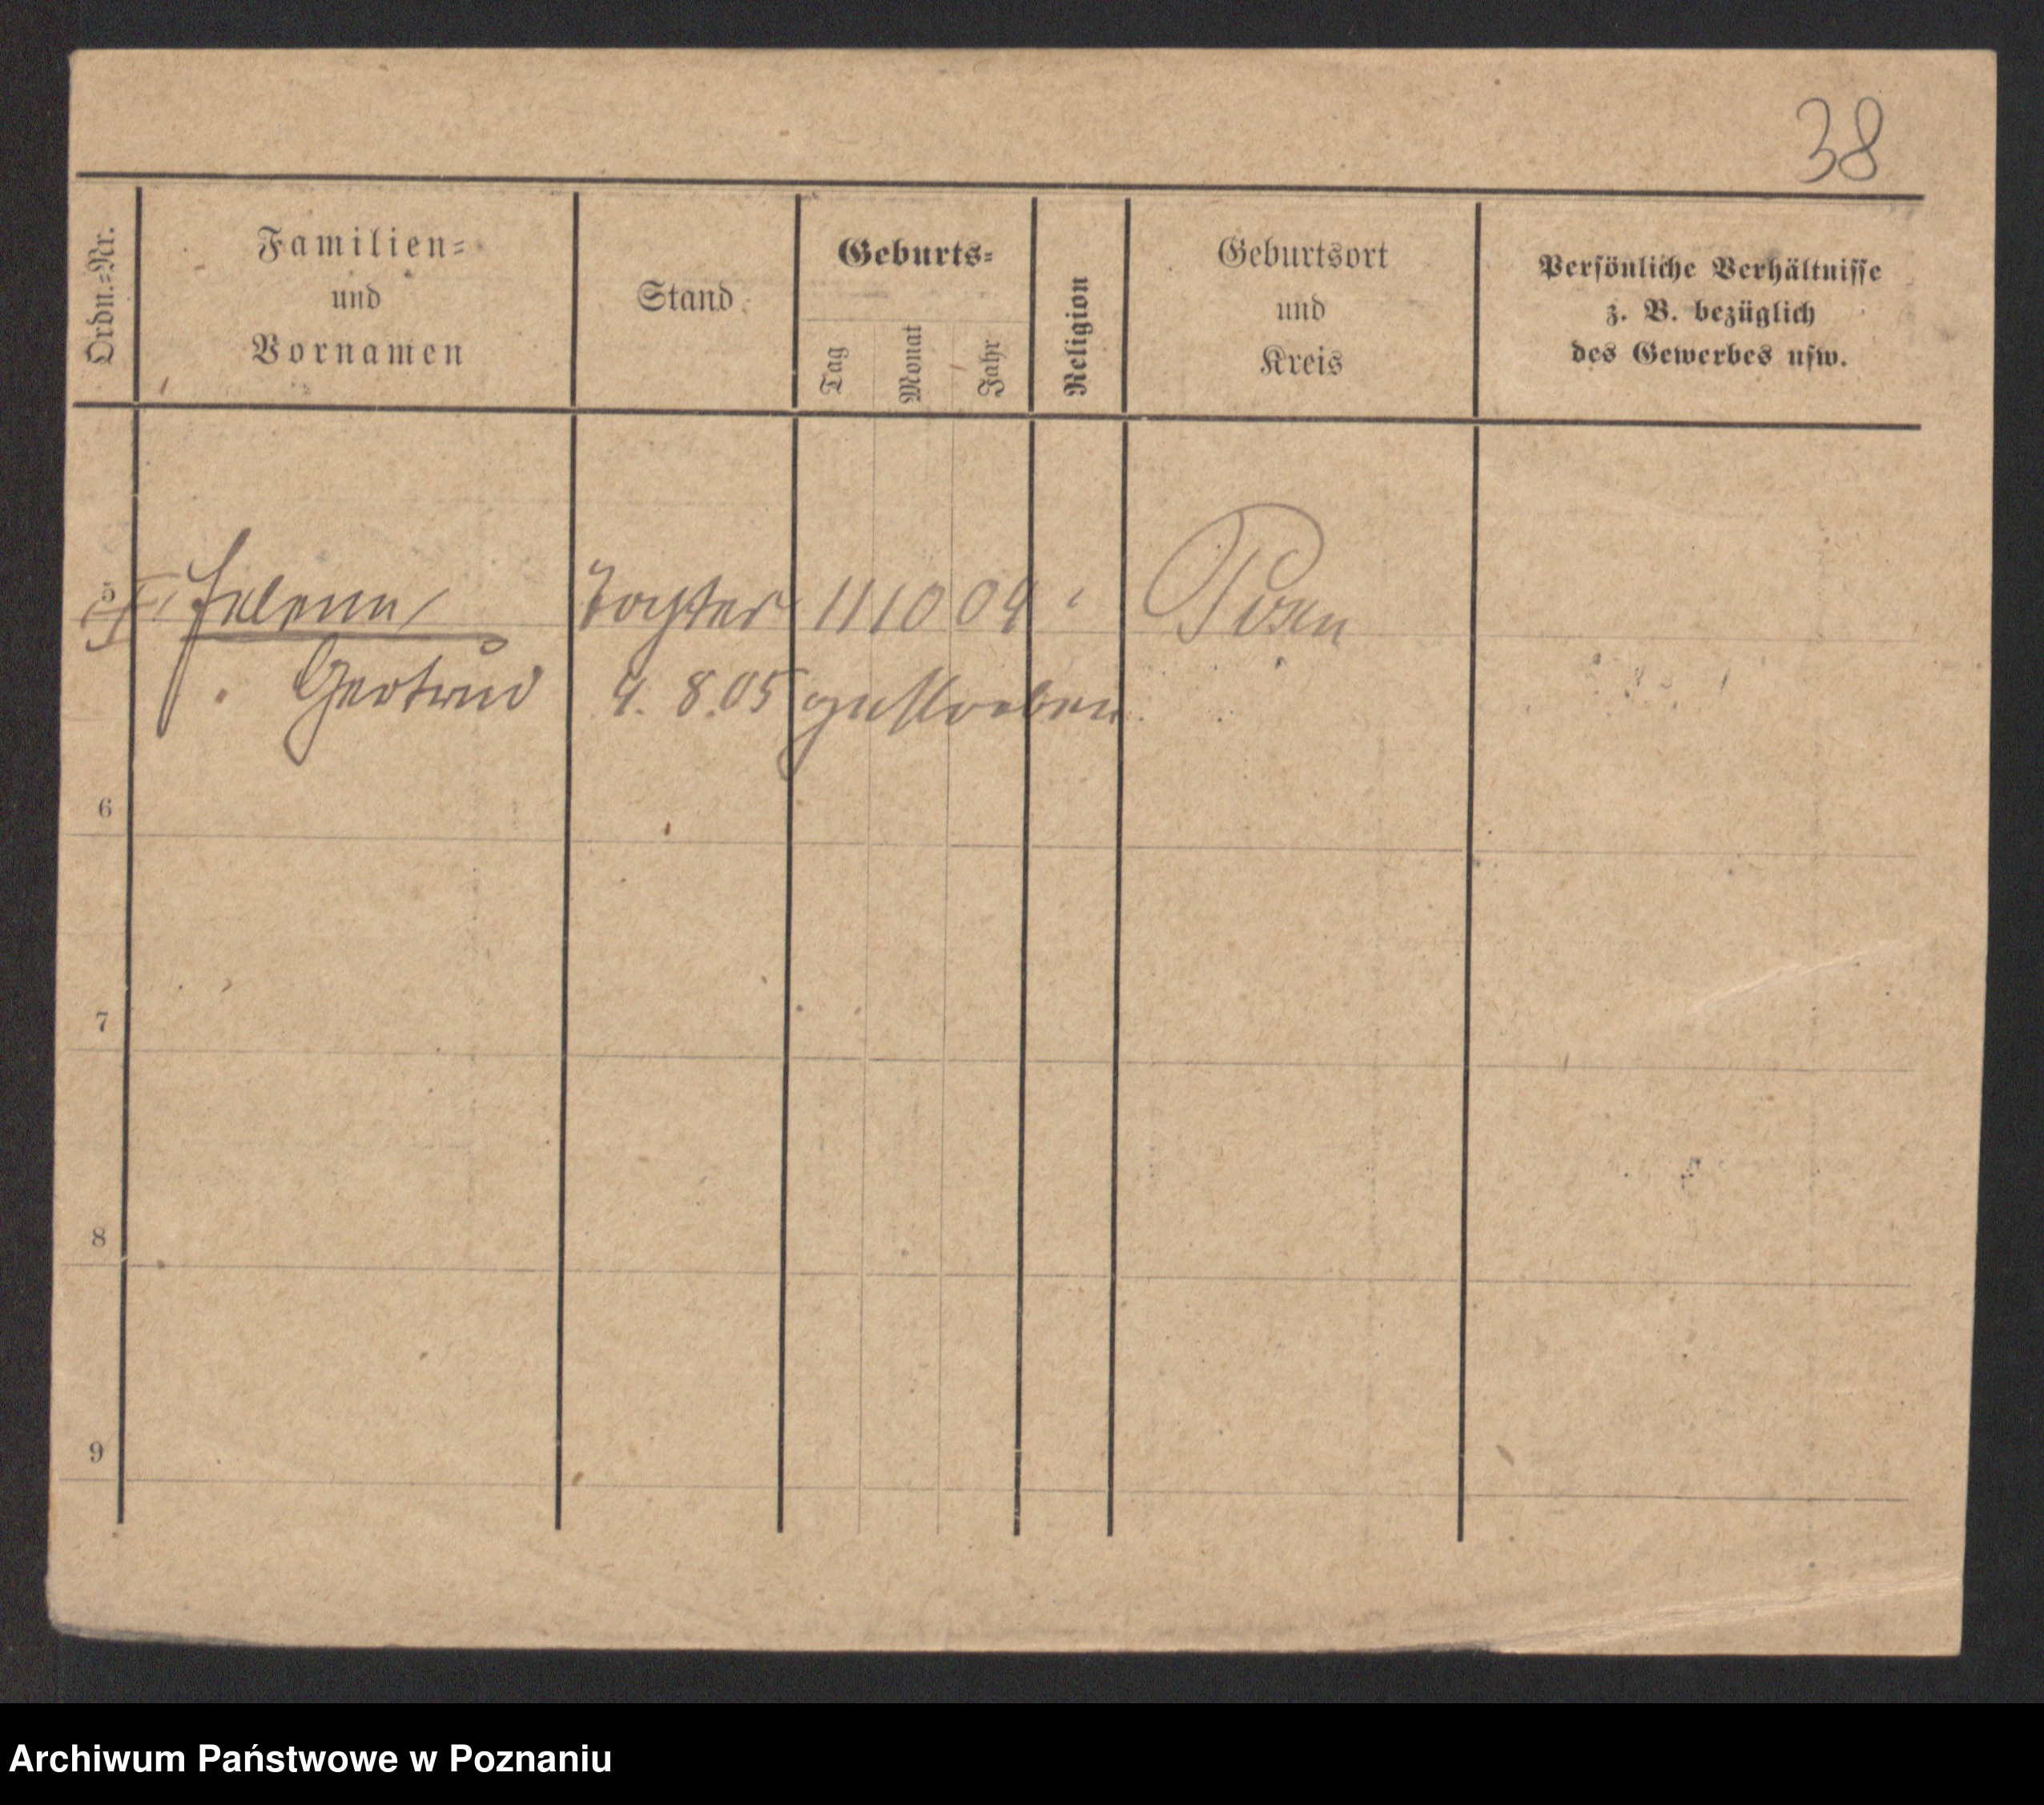 38
Ordn.-Nr.
Familien-
und
Vornamen
Stand
Geburts-
Tag
Monat
Jahr
Religion
Geburtsort
und
Kreis
Persönliche Verhältnisse
z. B. bezüglich
des Gewerbes usw.
5 Helene Tochter 11 10 04 Posen
Gertrud 4. 8. 05 gestorben
6
7
8
9
Archiwum Państwowe w Poznaniu